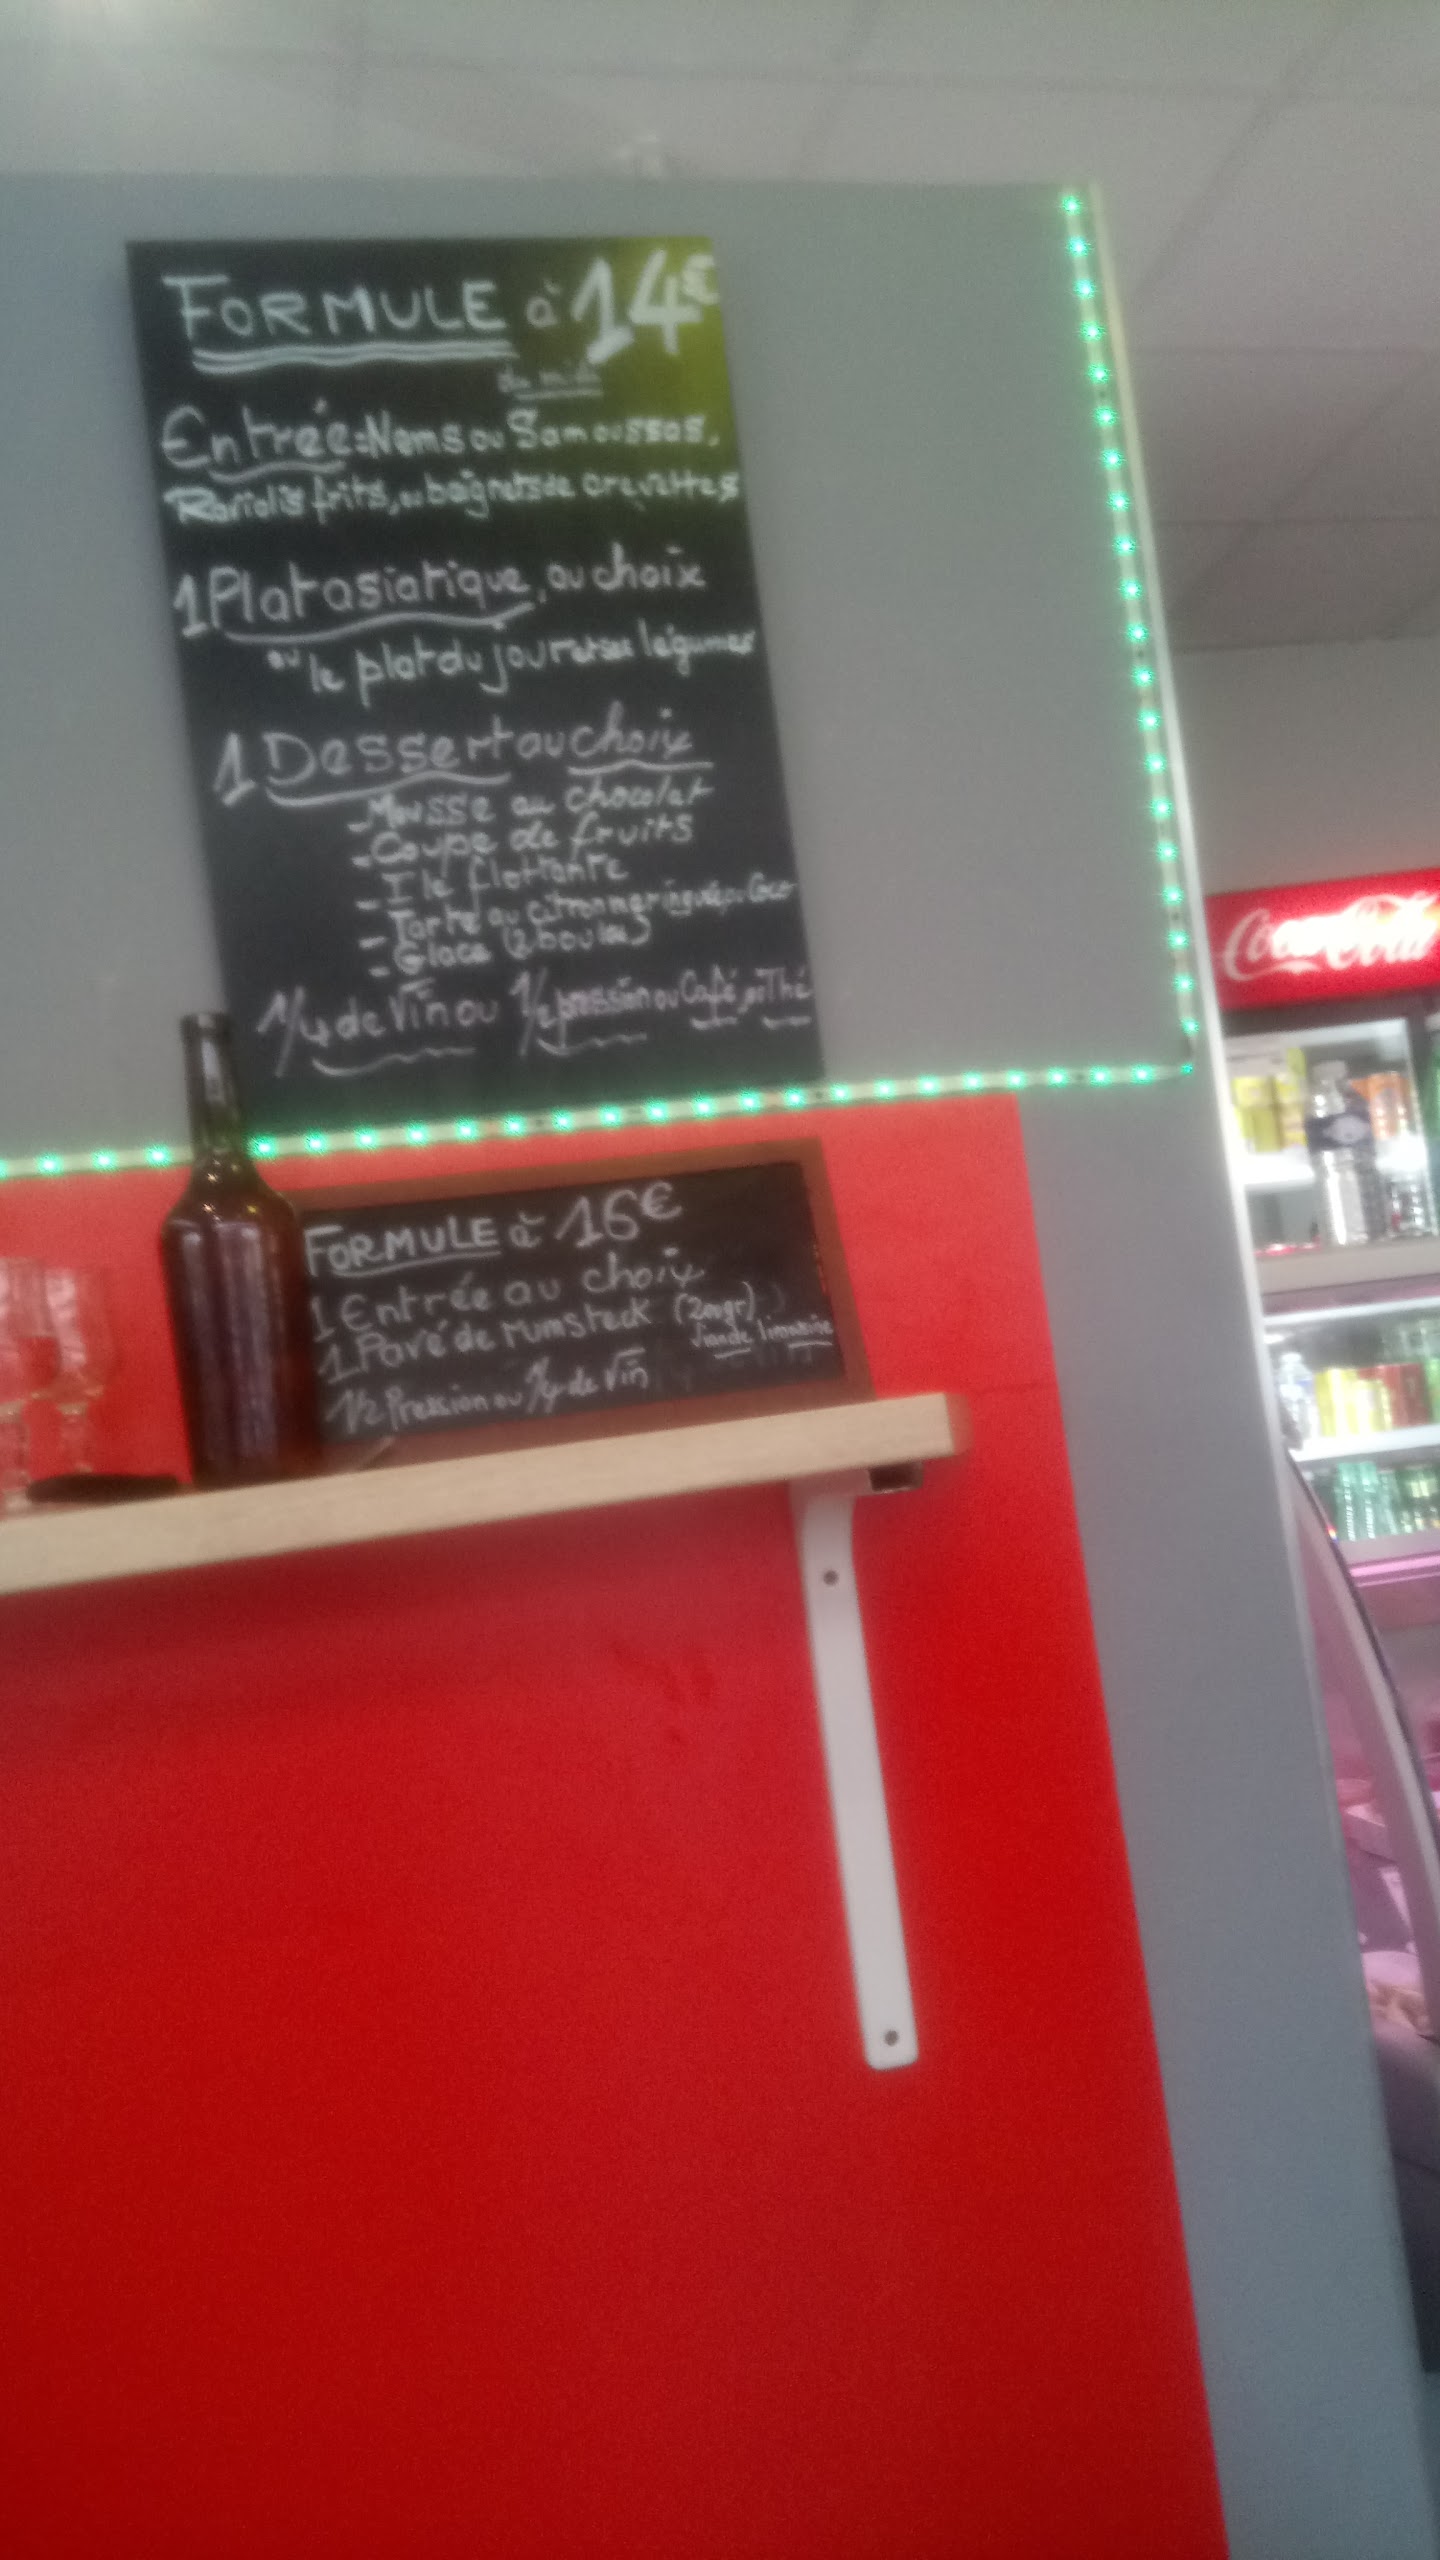 FORMULE à 14€
du midi
Entrée: Nems ou Samoussas,
Raviolis frits, ou beignets de crevettes
1 Plat asiatique, au choix
ou le plat du jour et ses légumes
1 Dessert au choix
- Mousse au chocolat
- Coupe de fruits
- Ile flottante
- Tarte au citron meringuée ou Coco
- Glace (2 boules)
1/4 de Vin ou 1/2 pression ou Café, ou Thé
FORMULE à 16€
1 Entrée au choix
1 Pavé de rumsteck (200gr)
Viande limousine
1/2 Pression ou 1/4 de Vin
Coca-Cola